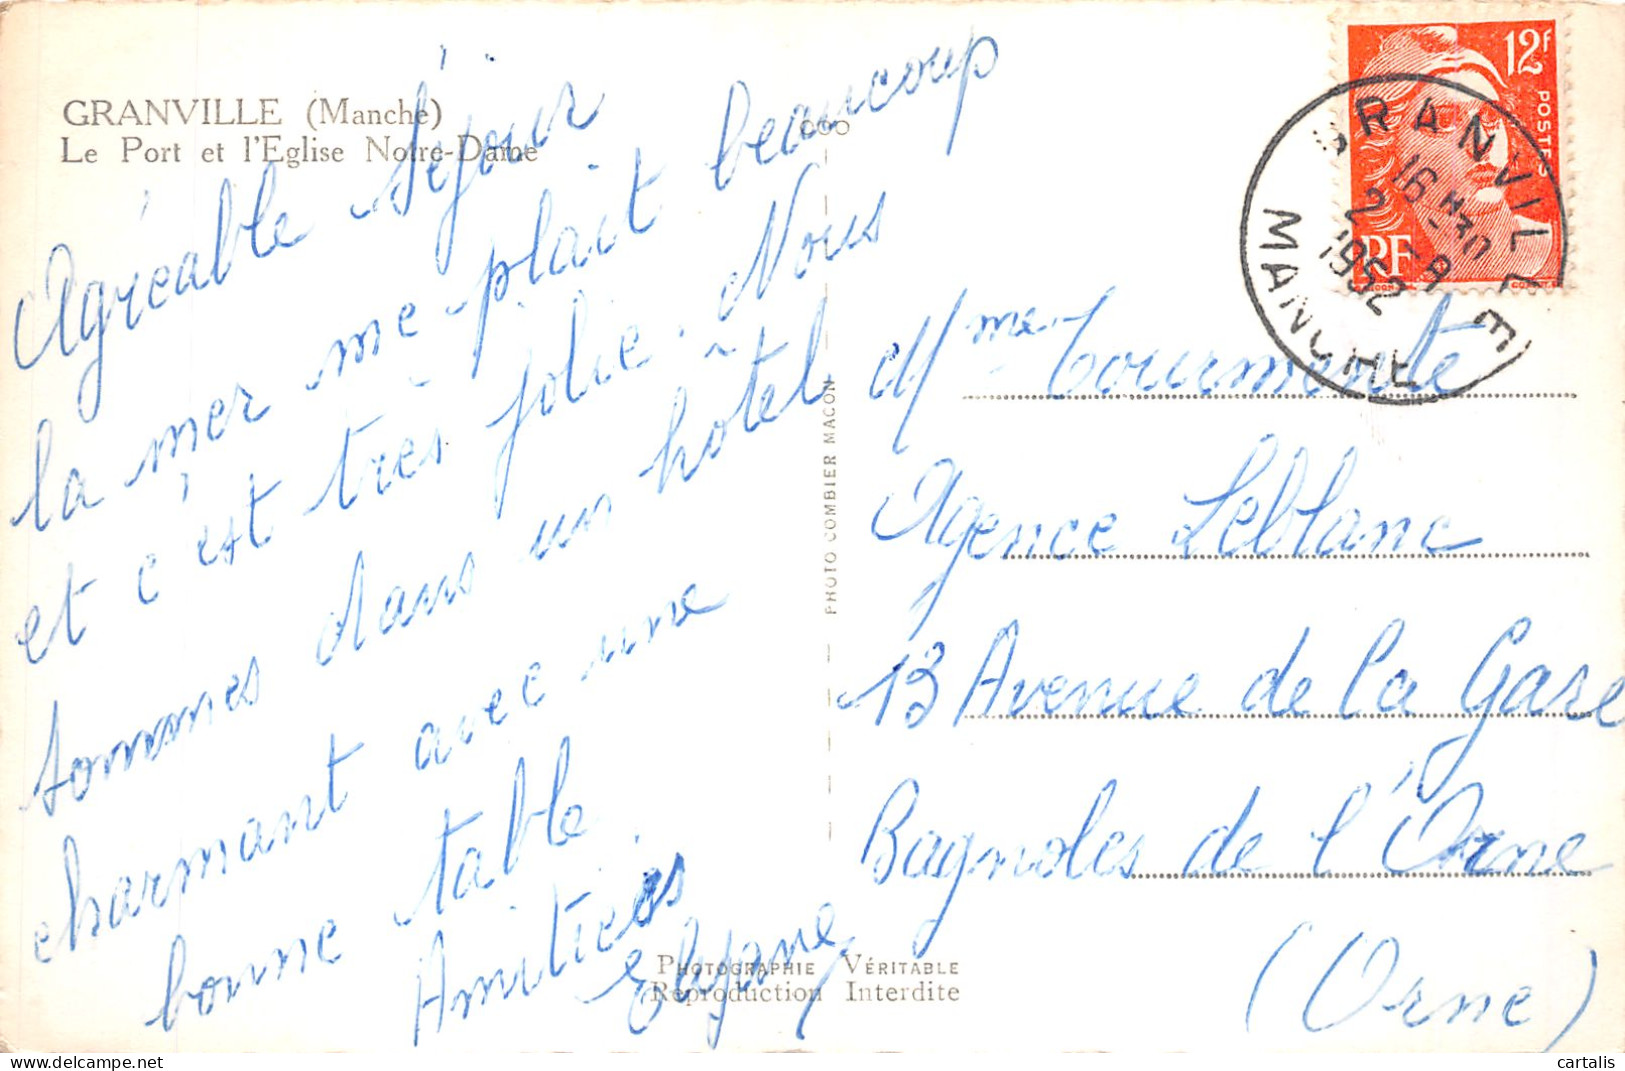 GRANVILLE (Manche)
Le Port et l'Eglise Notre-Dame
Agréable séjour
la mer me plait beaucoup
et c'est très jolie. Nous
sommes dans un hôtel
charmant avec une
bonne table
Amitiés
Elyane
PHOTO COMBIER MACON
PHOTOGRAPHIE VÉRITABLE
Reproduction Interdite
12f
POSTES
RF
GRANVILLE
16 H30
2 - 9
1952
MANCHE
Mme Tourmente
Agence Leblanc
13 Avenue de la Gare
Bagnoles de l'Orne
(Orne)
www.delcampe.net
cartalis